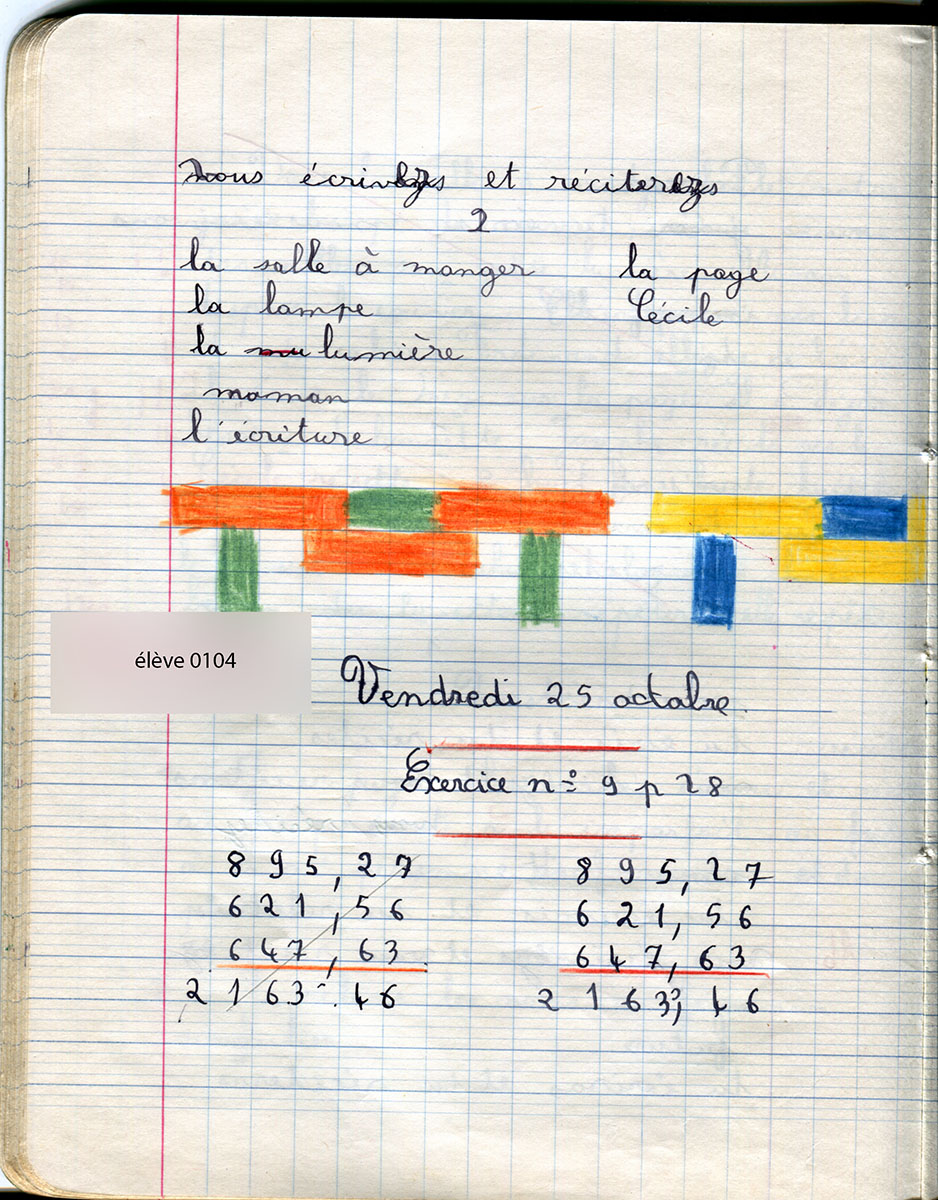 nous écrivez et réciterez
2
la salle à manger la page
la lampe Cécile
la lumière
maman
l'écriture
élève 0104
Vendredi 25 octobre
Exercice n° 9 p 28
895,27 895,27
621,56 621,56
647,63 647,63
2163.46 2163,46